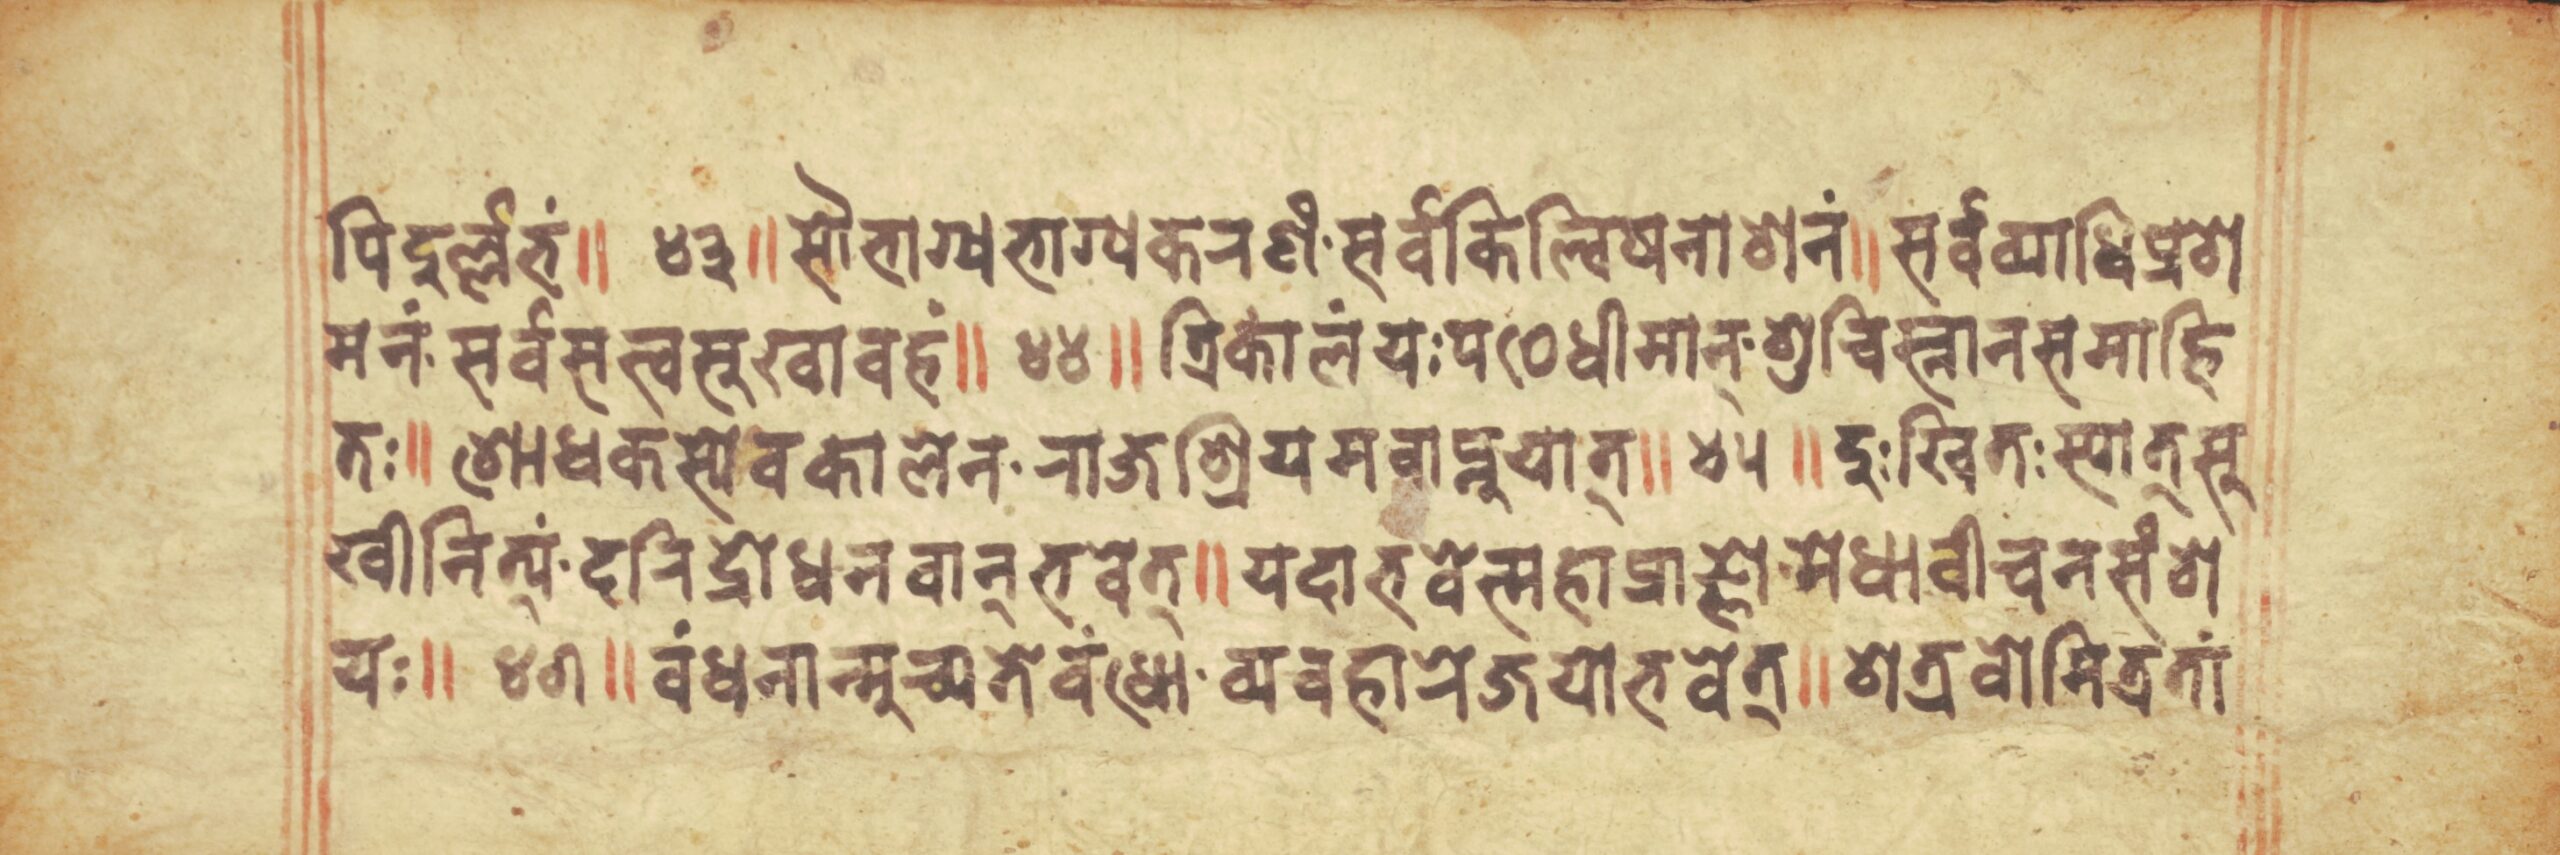 पिदुर्ल्लभं॥ ४३॥सौभाग्यभाग्यकरणं·सर्वकिल्विषनाशनं॥सर्वव्याधिप्रश
मनं·सर्वसत्वसूखावहं॥ ४४॥त्रिकालंयःपठेधीमान्·शुचिस्नानसमाहि
तः॥शोधकस्येवकालेन·राजश्रियमवाप्नुयात्॥४५॥दुःखितःस्यात्सू
खीनित्यं·दरिद्रोधनवान्भवेत्॥यदाभवेत्महाप्राज्ञो·मेधावीचनसंश
यः॥ ४७॥वंधनान्मुच्यतेवंधो·व्यवहारेजयोभवेत्॥शत्रवोमित्रतां